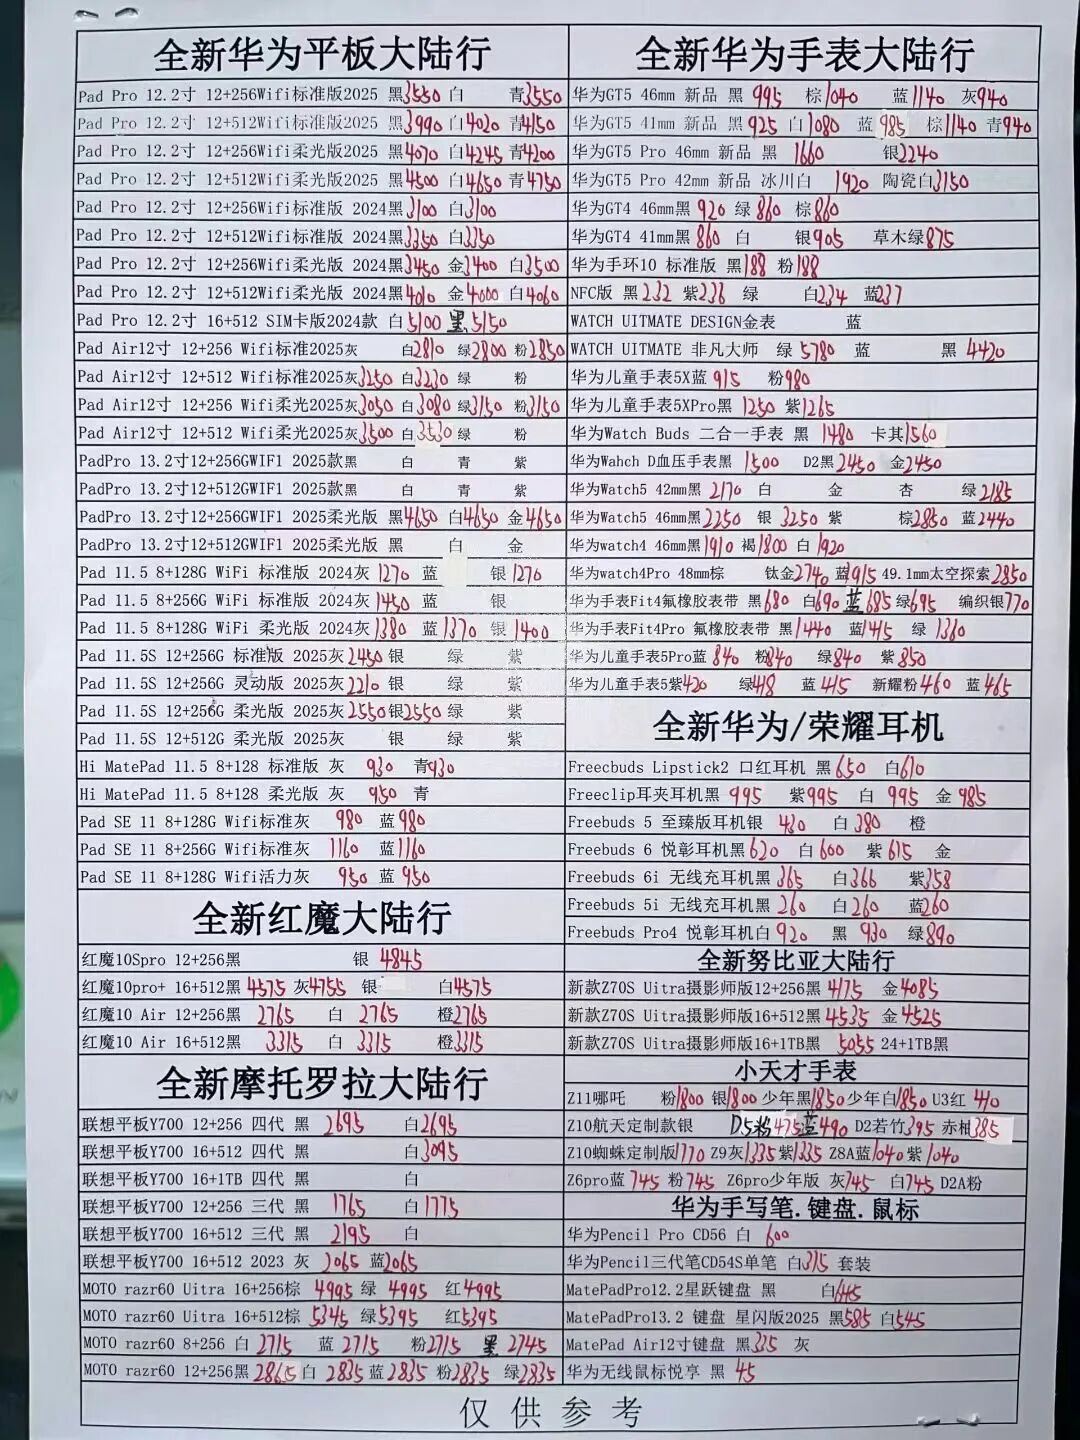 全新华为平板大陆行
Pad Pro 12.2寸 12+256Wifi标准版2025 黑3550 白 青3550
Pad Pro 12.2寸 12+512Wifi标准版2025 黑3990 白4020 青4150
Pad Pro 12.2寸 12+256Wifi柔光版2025 黑4070 白4245 青4200
Pad Pro 12.2寸 12+512Wifi柔光版2025 黑4500 白4650 青4750
Pad Pro 12.2寸 12+256Wifi标准版 2024黑3100 白3100
Pad Pro 12.2寸 12+512Wifi标准版 2024黑3350 白3350
Pad Pro 12.2寸 12+256Wifi柔光版 2024黑3450 金3400 白3500
Pad Pro 12.2寸 12+512Wifi柔光版 2024黑4010 金4000 白4060
Pad Pro 12.2寸 16+512 SIM卡版2024款 白5100 黑5150
Pad Air12寸 12+256 Wifi标准2025灰 白2810 绿2800 粉2850
Pad Air12寸 12+512 Wifi标准2025灰3250 白3230 绿 粉
Pad Air12寸 12+256 Wifi柔光2025灰3050 白3080 绿3150 粉3150
Pad Air12寸 12+512 Wifi柔光2025灰3500 白3530 绿 粉
PadPro 13.2寸12+256GWIF1 2025款黑 白 青 紫
PadPro 13.2寸12+512GWIF1 2025款黑 白 青 紫
PadPro 13.2寸12+256GWIF1 2025柔光版 黑4650 白4650 金4650
PadPro 13.2寸12+512GWIF1 2025柔光版 黑 白 金
Pad 11.5 8+128G WiFi 标准版 2024灰 1270 蓝 银1270
Pad 11.5 8+256G WiFi 标准版 2024灰1450 蓝 银
Pad 11.5 8+128G WiFi 柔光版 2024灰1380 蓝 1370 银 1400
Pad 11.5S 12+256G 标准版 2025灰2450 银 绿 紫
Pad 11.5S 12+256G 灵动版 2025灰2210 银 绿 紫
Pad 11.5S 12+256G 柔光版 2025灰2550 银2550 绿 紫
Pad 11.5S 12+512G 柔光版 2025灰 银 绿 紫
Hi MatePad 11.5 8+128 标准版 灰 930 青930
Hi MatePad 11.5 8+128 柔光版 灰 950 青
Pad SE 11 8+128G Wifi标准灰 980 蓝980
Pad SE 11 8+256G Wifi标准灰 1160 蓝1160
Pad SE 11 8+128G Wifi活力灰 950 蓝 950
全新红魔大陆行
红魔10Spro 12+256黑 银 4845
红魔10pro+ 16+512黑 4575 灰4755 银 白4575
红魔10 Air 12+256黑 2765 白 2765 橙2765
红魔10 Air 16+512黑 3315 白 3315 橙3315
全新摩托罗拉大陆行
联想平板Y700 12+256 四代 黑 2695 白2695
联想平板Y700 16+512 四代 黑 白3095
联想平板Y700 16+1TB 四代 黑 白
联想平板Y700 12+256 三代 黑 1765 白1775
联想平板Y700 16+512 三代 黑 2195 白
联想平板Y700 16+512 2023 灰 2065 蓝2065
MOTO razr60 Uitra 16+256棕 4995 绿 4995 红4995
MOTO razr60 Uitra 16+512棕 5345 绿5395 红5395
MOTO razr60 8+256 白 2715 蓝 2715 粉2715 黑 2745
MOTO razr60 12+256黑 2865 白 2835 蓝2835 粉2835 绿2835
全新华为手表大陆行
华为GT5 46mm 新品 黑 995 棕1040 蓝1140 灰940
华为GT5 41mm 新品 黑925 白1080 蓝 985 棕1140 青940
华为GT5 Pro 46mm 新品 黑 1660 银2240
华为GT5 Pro 42mm 新品 冰川白 1920 陶瓷白3150
华为GT4 46mm黑 920 绿 860 棕860
华为GT4 41mm黑 860 白 银905 草木绿875
华为手环10 标准版 黑188 粉188
NFC版 黑 232 紫236 绿 白234 蓝237
WATCH UITMATE DESIGN金表 蓝
WATCH UITMATE 非凡大师 绿 5780 蓝 黑 4420
华为儿童手表5X蓝 915 粉980
华为儿童手表5XPro黑 1250 紫1265
华为Watch Buds 二合一手表 黑 1480 卡其1560
华为Wahch D血压手表黑 1500 D2黑2450 金2450
华为Watch5 42mm黑 2170 白 金 杏 绿2185
华为Watch5 46mm黑2250 银 3250 紫 棕2850 蓝2440
华为watch4 46mm黑1910 褐1800 白 1920
华为watch4Pro 48mm棕 钛金2740 蓝1915 49.1mm太空探索2850
华为手表Fit4氟橡胶表带 黑680 白690 蓝685 绿695 编织银770
华为手表Fit4Pro 氟橡胶表带 黑1440 蓝1415 绿 1360
华为儿童手表5Pro蓝 840 粉840 绿840 紫850
华为儿童手表5紫420 绿418 蓝 415 新耀粉460 蓝465
全新华为/荣耀耳机
Freecbuds Lipstick2 口红耳机 黑650 白610
Freeclip耳夹耳机黑 995 紫995 白 995 金 985
Freebuds 5 至臻版耳机银 430 白380 橙
Freebuds 6 悦彰耳机黑620 白600 紫615 金
Freebuds 6i 无线充耳机黑 365 白366 紫358
Freebuds 5i 无线充耳机黑 260 白260 蓝260
Freebuds Pro4 悦彰耳机白 920 黑 930 绿890
全新努比亚大陆行
新款Z70S Uitra摄影师版12+256黑4175 金4085
新款Z70S Uitra摄影师版16+512黑4535 金4525
新款Z70S Uitra摄影师版16+1TB黑 5055 24+1TB黑
小天才手表
Z11哪吒 粉1800 银1800 少年黑1850 少年白1850 U3红 410
Z10航天定制款银 D5粉475 蓝490 D2若竹395 赤柚385
Z10蜘蛛定制版1770 Z9灰1335 紫1335 Z8A蓝1040 紫1040
Z6pro蓝 745 粉745 Z6pro少年版 灰745 白745 D2A粉
华为手写笔.键盘.鼠标
华为Pencil Pro CD56 白 600
华为Pencil三代笔CD54S单笔 白315 套装
MatePadPro12.2星跃键盘 黑 白645
MatePadPro13.2 键盘 星闪版2025 黑585 白545
MatePad Air12寸键盘 黑335 灰
华为无线鼠标悦享 黑 45
仅供参考